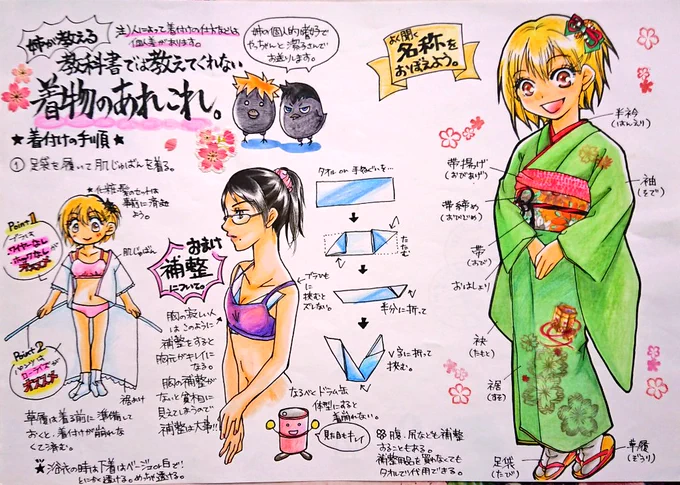 注)人によって着付けの仕方などは
個人差があります。
姉が教える
教科書では教えてくれない
着物のあれこれ。
姉の個人的嗜好で
やっちゃんと潔子さんで
お送りします。
よく聞く
名称を
おぼえよう。
★着付けの手順★
① 足袋を履いて肌じゅばんを着る。
★化粧、髪のセットは
事前に済ませ
よう。
Point 1
ブラは
ワイヤーなし
ホックなしが
オススメ
肌じゅばん
Point 2
パンツは
ローライズが
オススメ
裾よけ
草履は着る前に準備して
おくと、着付けが崩れな
くてすむ。
★浴衣の時は下着はベージュのみで!!
とにかく透ける。めっちゃ透ける。
おまけ
補整
について。
胸の寂しい人
はこのように
補整をすると
胸元がキレイに
なる。
胸の補整が
ないと貧相に
見えてしまうので
補整は大事!!
タオル or 手ぬぐいを…
たたむ
半分に折って
V字に折って
挟む。
ブラやもに
挟むと
ズレない。
なるべくドラム缶
体型にすると
着崩れない。
見た目もキレイ
※腹、尻なども補整
することもある。
補整用品を買わなくても
タオルでも代用できる。
半衿
(はんえり)
帯揚げ
(おびあげ)
袖
(そで)
帯締め
(おびじめ)
帯
(おび)
おはしょり
袂
(たもと)
裾
(すそ)
足袋
(たび)
草履
(ぞうり)